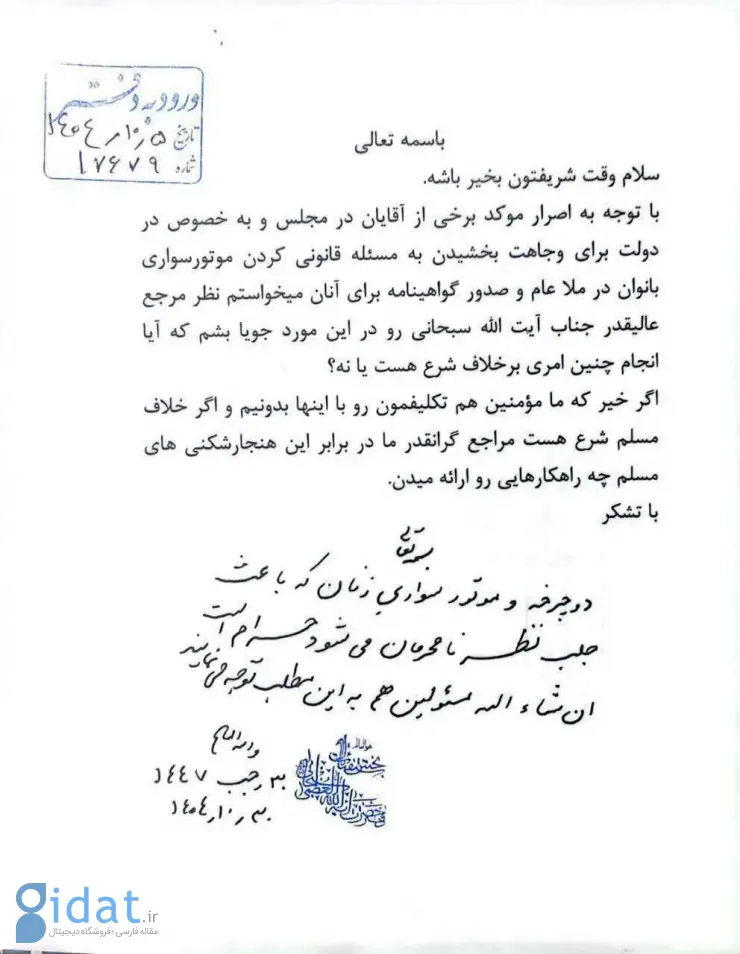 ورود به دفتر
تاریخ ۱۴۰۴،۱۰،۵
شماره ۱۷۶۷۹
باسمه تعالی
سلام وقت شریفتون بخیر باشه.
با توجه به اصرار موکد برخی از آقایان در مجلس و به خصوص در
دولت برای وجاهت بخشیدن به مسئله قانونی کردن موتورسواری
بانوان در ملا عام و صدور گواهینامه برای آنان میخواستم نظر مرجع
عالیقدر جناب آیت الله سبحانی رو در این مورد جویا بشم که آیا
انجام چنین امری برخلاف شرع هست یا نه؟
اگر خیر که ما مؤمنین هم تکلیفمون رو با اینها بدونیم و اگر خلاف
مسلم شرع هست مراجع گرانقدر ما در برابر این هنجارشکنی های
مسلم چه راهکارهایی رو ارائه میدن.
با تشکر
بسمه تعالی
دوچرخه و موتور سواری زنان که باعث
جلب نظر نامحرمان می شود حرام است
ان شاء الله مسئولین هم به این مطلب توجه می نمایند
والله العالم
رجب ۱۴۴۷
gidat.ir
مقاله فارسی؛ فروشگاه دیجیتال